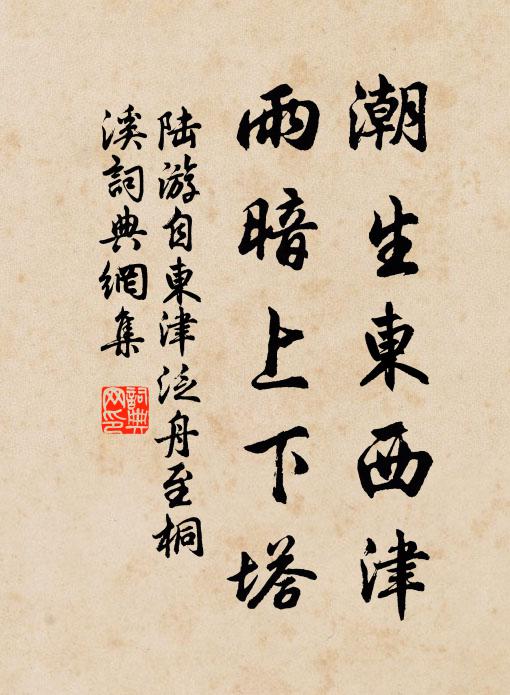 潮生東西津
雨暗上下塔
陆游自東津泛舟至桐
溪詞典網集
詞典
网印